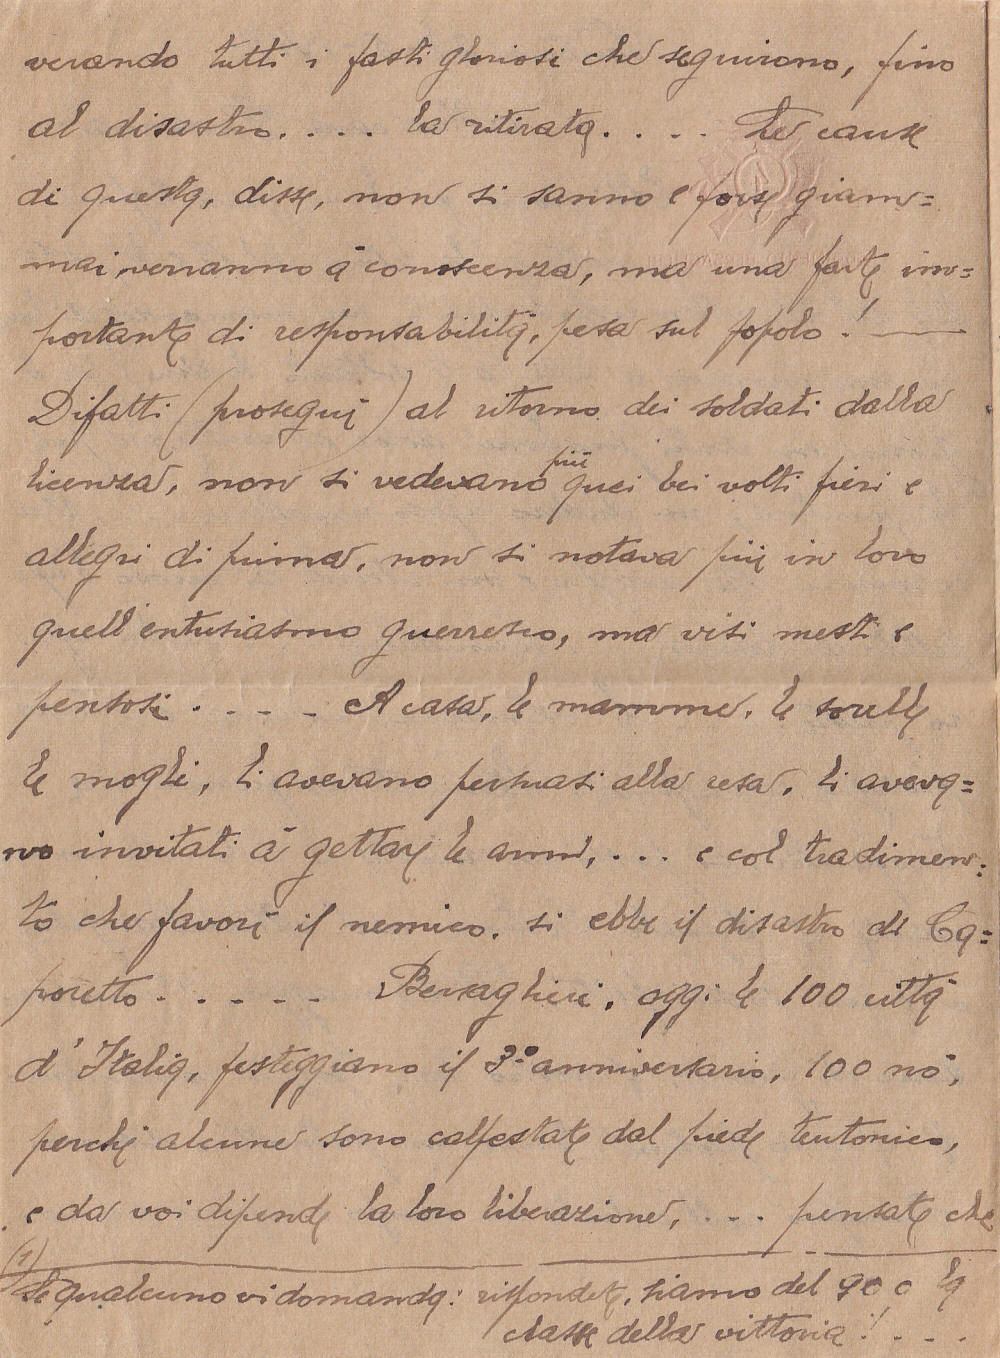 verando tutti i fasti gloriosi che seguirono, fino
al disastro. . . . la ritirata. . . . Le cause
di questa, disse, non si sanno e forse giam=
mai verranno à conoscenza, ma una parte im=
portante di responsabilità, pesa sul popolo! —
Difatti (proseguì) al ritorno dei soldati dalla
licenza, non si vedevano più quei bei volti fieri e
allegri di prima, non si notava più in loro
quell'entusiasmo guerresco, ma visi mesti e
pensosi . . . . A casa, le mamme, le sorelle
le moglie, li avevano persuasi alla resa, li aveva=
no invitati à gettare le armi, . . . e col tradimen=
to che favorì il nemico, si ebbe il disastro di Ca=
poretto. . . . . . Bersaglieri, oggi le 100 città
d'Italia, festeggiano il 3° anniversario, 100 nò,
perchè alcune sono calpestate dal piede teutonico,
e da voi dipende la loro liberazione, . . . pensate che
(1)
Se qualcuno vi domanda: rispondete, siamo del 900 la
classe della vittoria! . . .